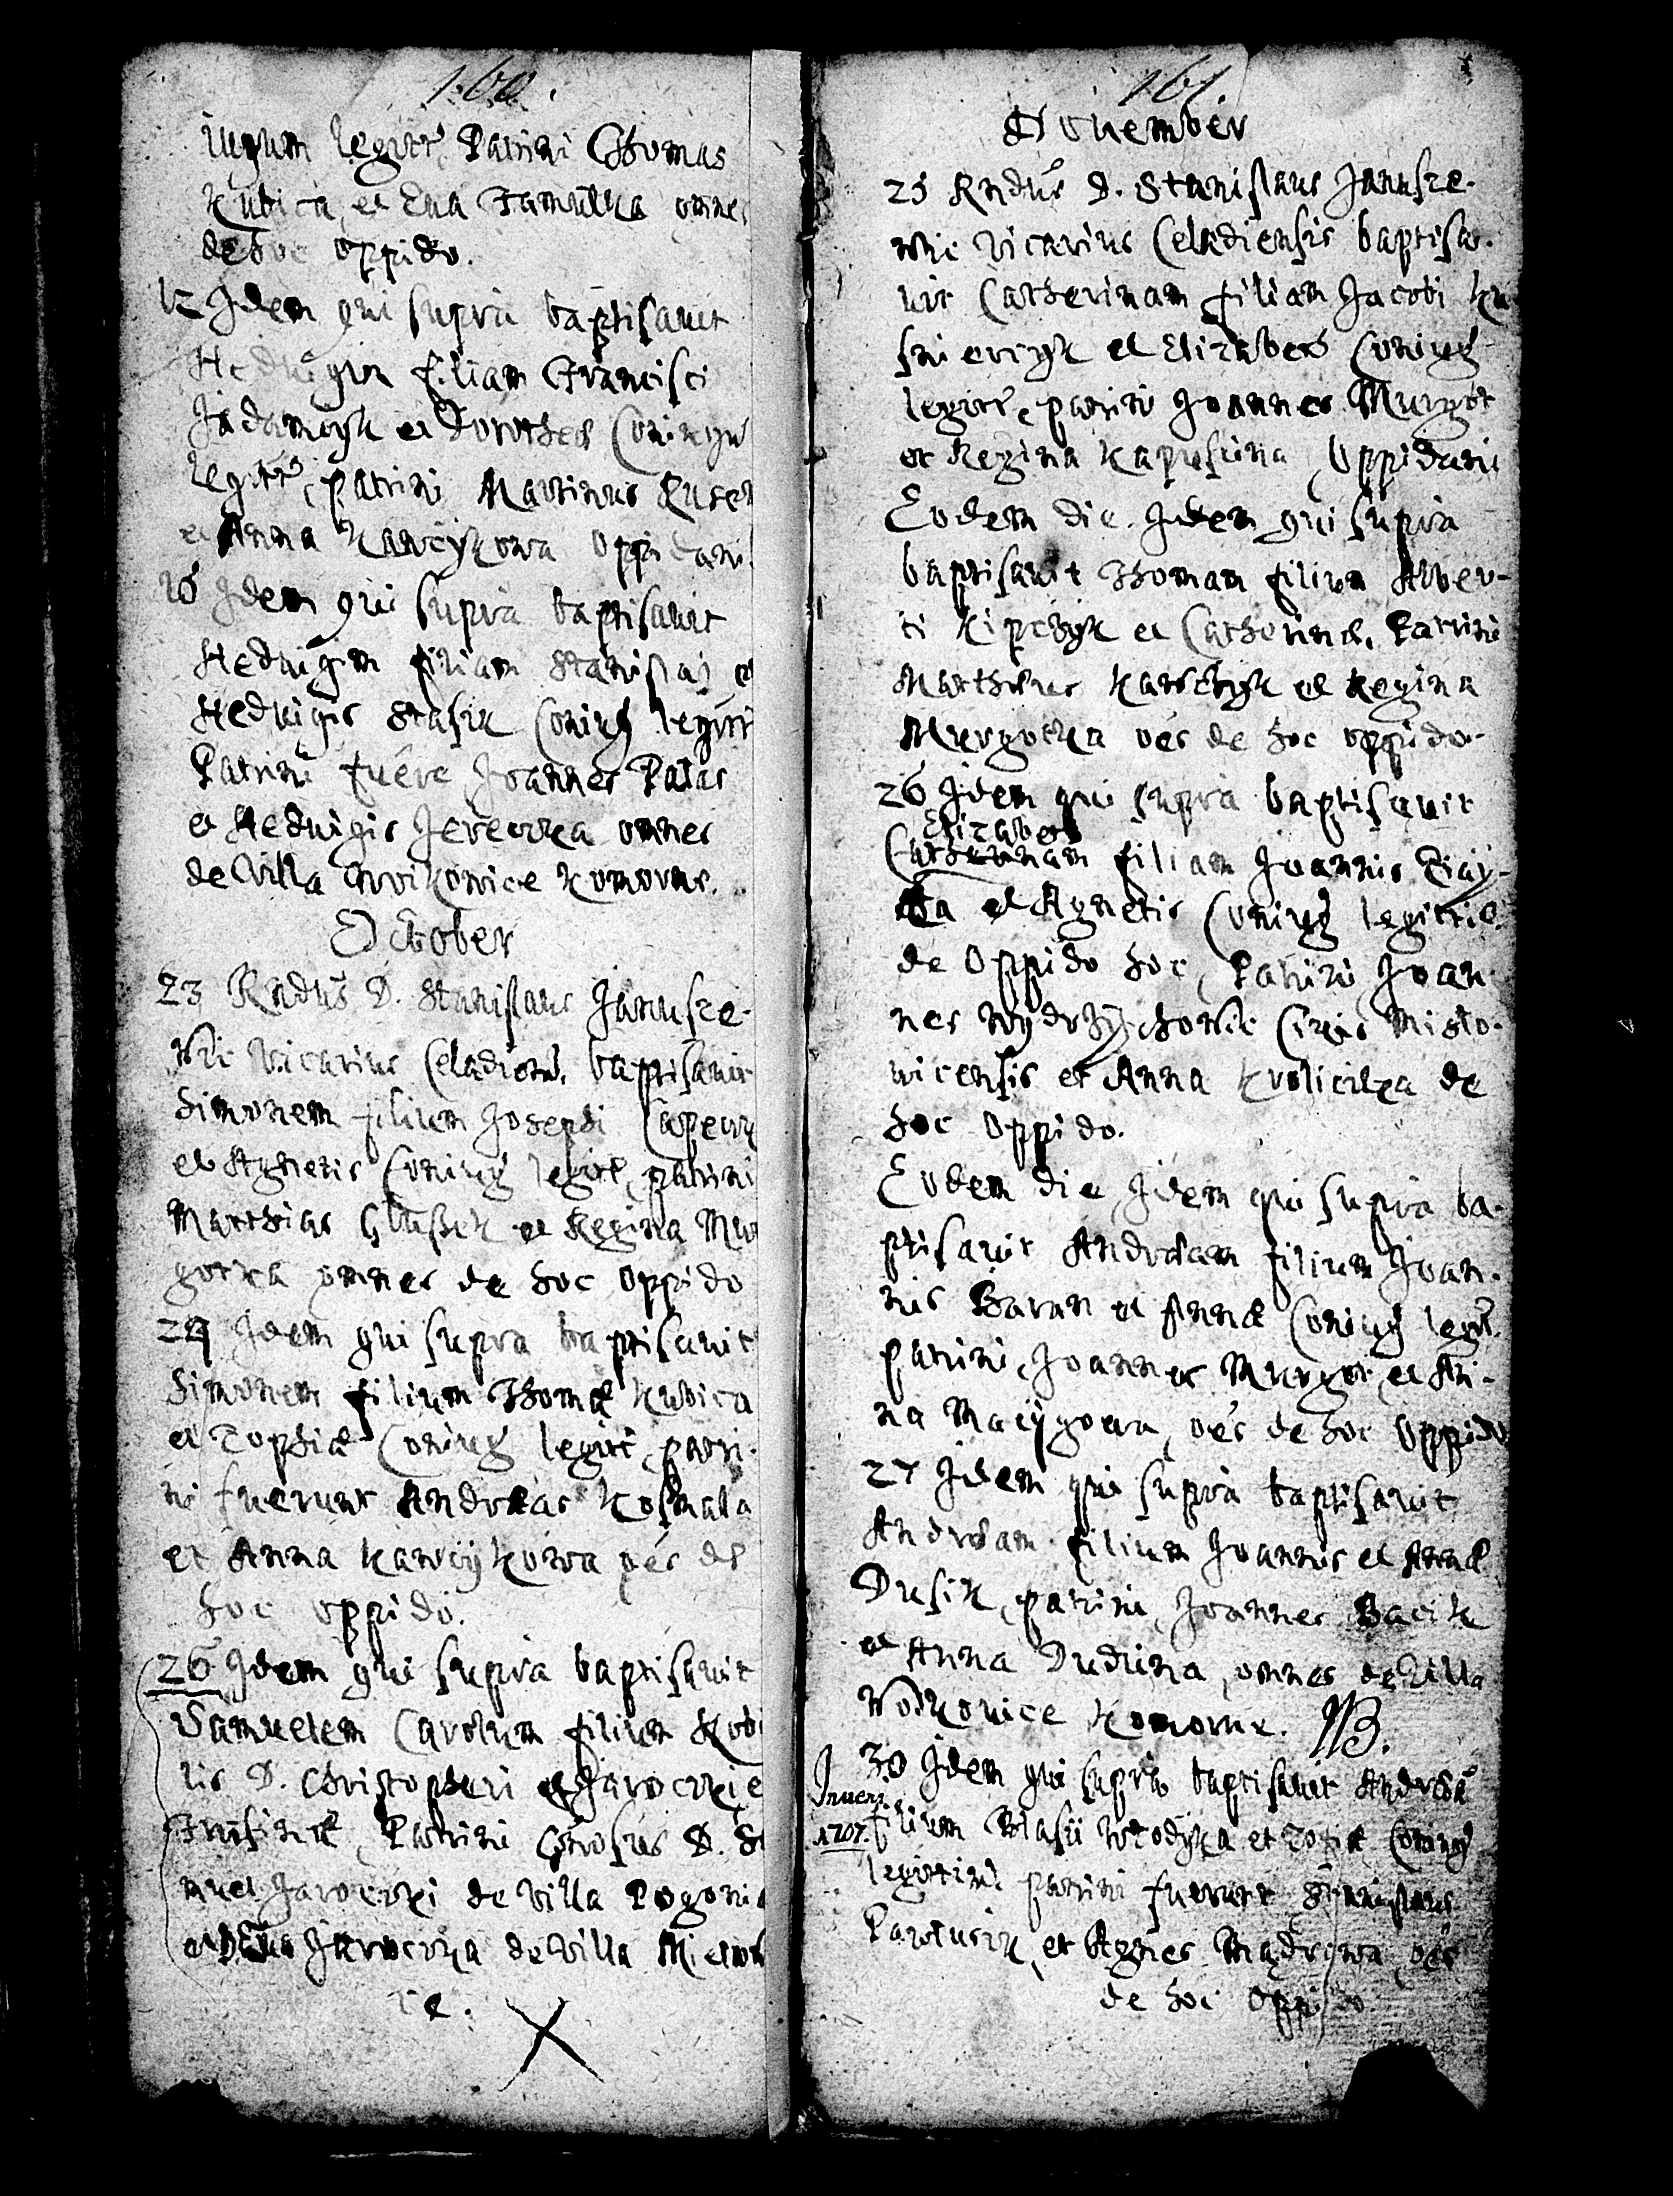 160.
iugum legitt. Patrini Thomas
Kubica, et Eua Famulka omnes
de hoc oppido.
12 Jdem qui supra baptisauit
Heduigim filiam Francisci
Jadamczyk et Dorotheæ Coniugu
legitt, patrini Martinus
et Anna Kawczykowa Oppidani
16 Jdem qui supra baptisauit
Heduigim filiam Stanislai et
Heduigis Stasik Coniug legitt
Patrini fuere Joannes Palas
et Heduigis omnes
de Villa Woikowice Komorne.
October
23 Rndus D. Stanislaus Janusze-
wic Vicarius Celadien. baptisauit
Simonem filium Josephi
et Agnetis Coniug legitt, patrini
Matthias et Regina Mur
gotka omnes de hoc Oppido
24 Jdem qui supra baptisauit
Simonem filium Thomæ Kubica
et Zophiæ Coniug legitt, patri-
ni fuerunt Andreas Kosmala
et Anna Kawczykowa oes de
hoc oppido.
26 Jdem qui supra baptisauit
Samuelem Carolum filium Nobi
lis D. Christophori et
Patrini Gnosus D. Sa
muel Jarocki de Villa Pogonia
et Jarocka de Villa
ce.
161.
Nouember
25 Rndus D. Stanislaus Janusze-
wic Vicarius Celadiensis baptisa-
uit Catherinam filiam Jacobi Ku
snierczyk et Elizabeth Coniug
legitt, patrini Joannes Murgot
et Regina Kapuscina Oppidani
Eodem die Jdem qui supra
baptisauit Thomam filium Alber-
ti Kipczyk et Catherinæ, Patrini
Matthæus Karczyk et Regina
Murgotka oes de hoc oppido
26 Jdem qui supra baptisauit
Elizabeth
Catherinam filiam Joannis
et Agnetis Coniug legitti
de Oppido hoc, Patrini Joan-
nes Wydrzychowic Ciuis Mislo-
uicensis et Anna Kroliczka de
hoc Oppido.
Eodem die Jdem qui supra ba-
ptisauit Andream filium Joan-
nis Baran et Annæ Coniug legit.
patrini, Joannes Murgot, et An-
na Maczygowa, oes de hoc Oppido
27 Jdem qui supra baptisauit
Andream filium Joannis et Annæ
Dusik, patrini, Joannes Bacik
et Anna Dudzina, omnes de Villa
Woikouice Komorne. NB.
30 Jdem qui supra baptisauit Andreã
1707.
filium Blasii Wlodyka et Zofiæ Coniug
legittimi patrini fuerunt Stanislaus
Pawlusik, et Agnes Mądrzywa, oes
de hoc Oppido